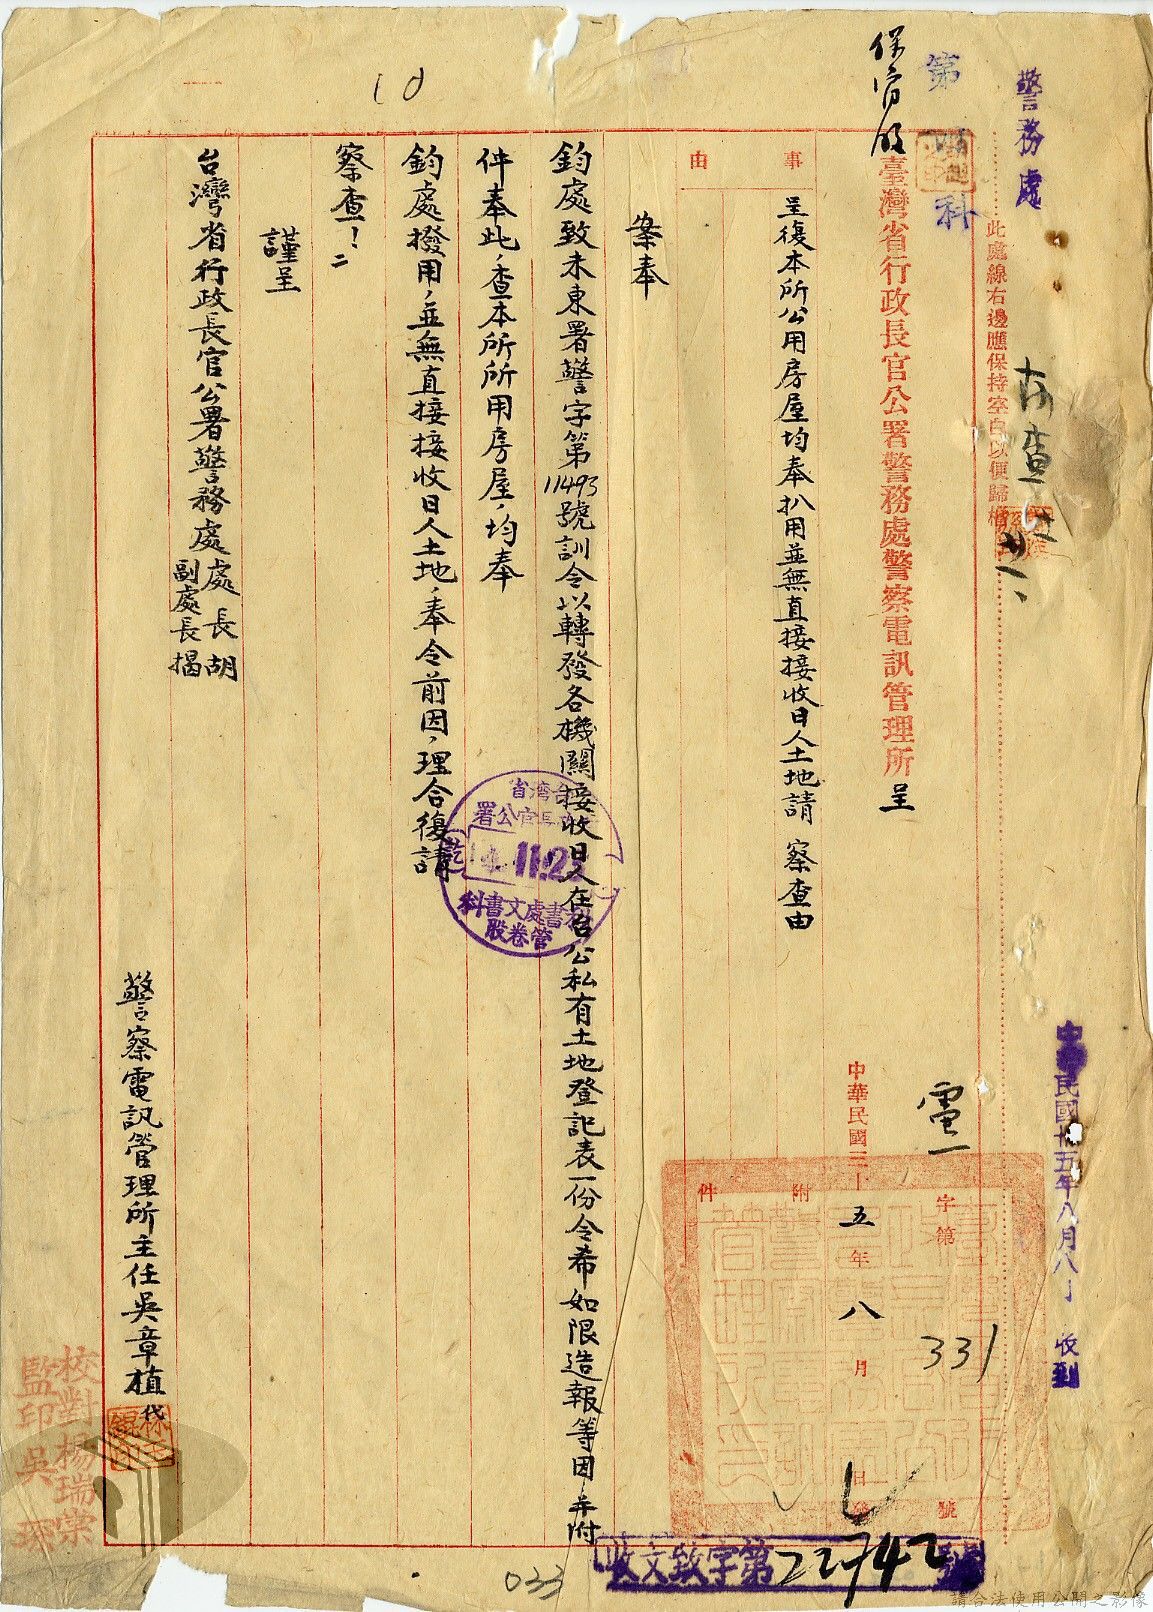 警務處
中華民國卅五年八月八日收到
存查
此處線右邊應保持空白以便歸檔
第 科
電一字第331號
保宿股
臺灣省行政長官公署警務處警察電訊管理所呈
中華民國三十五年八月 日發
附件
事由
呈復本所公用房屋均奉扒用並無直接接收日人土地請 察查由
案奉
鈞處致未東署警字第11493號訓令以轉發各機關接收日人在台公私有土地登記表一份令希如限造報等因并附
件奉此，查本所所用房屋，均奉
鈞處撥用，並無直接接收日人土地，奉令前因，理合復請
察查！
謹呈
台灣省行政長官公署警務處處長胡
副處長揭
警察電訊管理所主任吳章植代
校對楊瑞棠
監印吳琢
11.23
秘書處文書科
管卷股
收文致字第22742號
10
033
請合法使用公開之影像